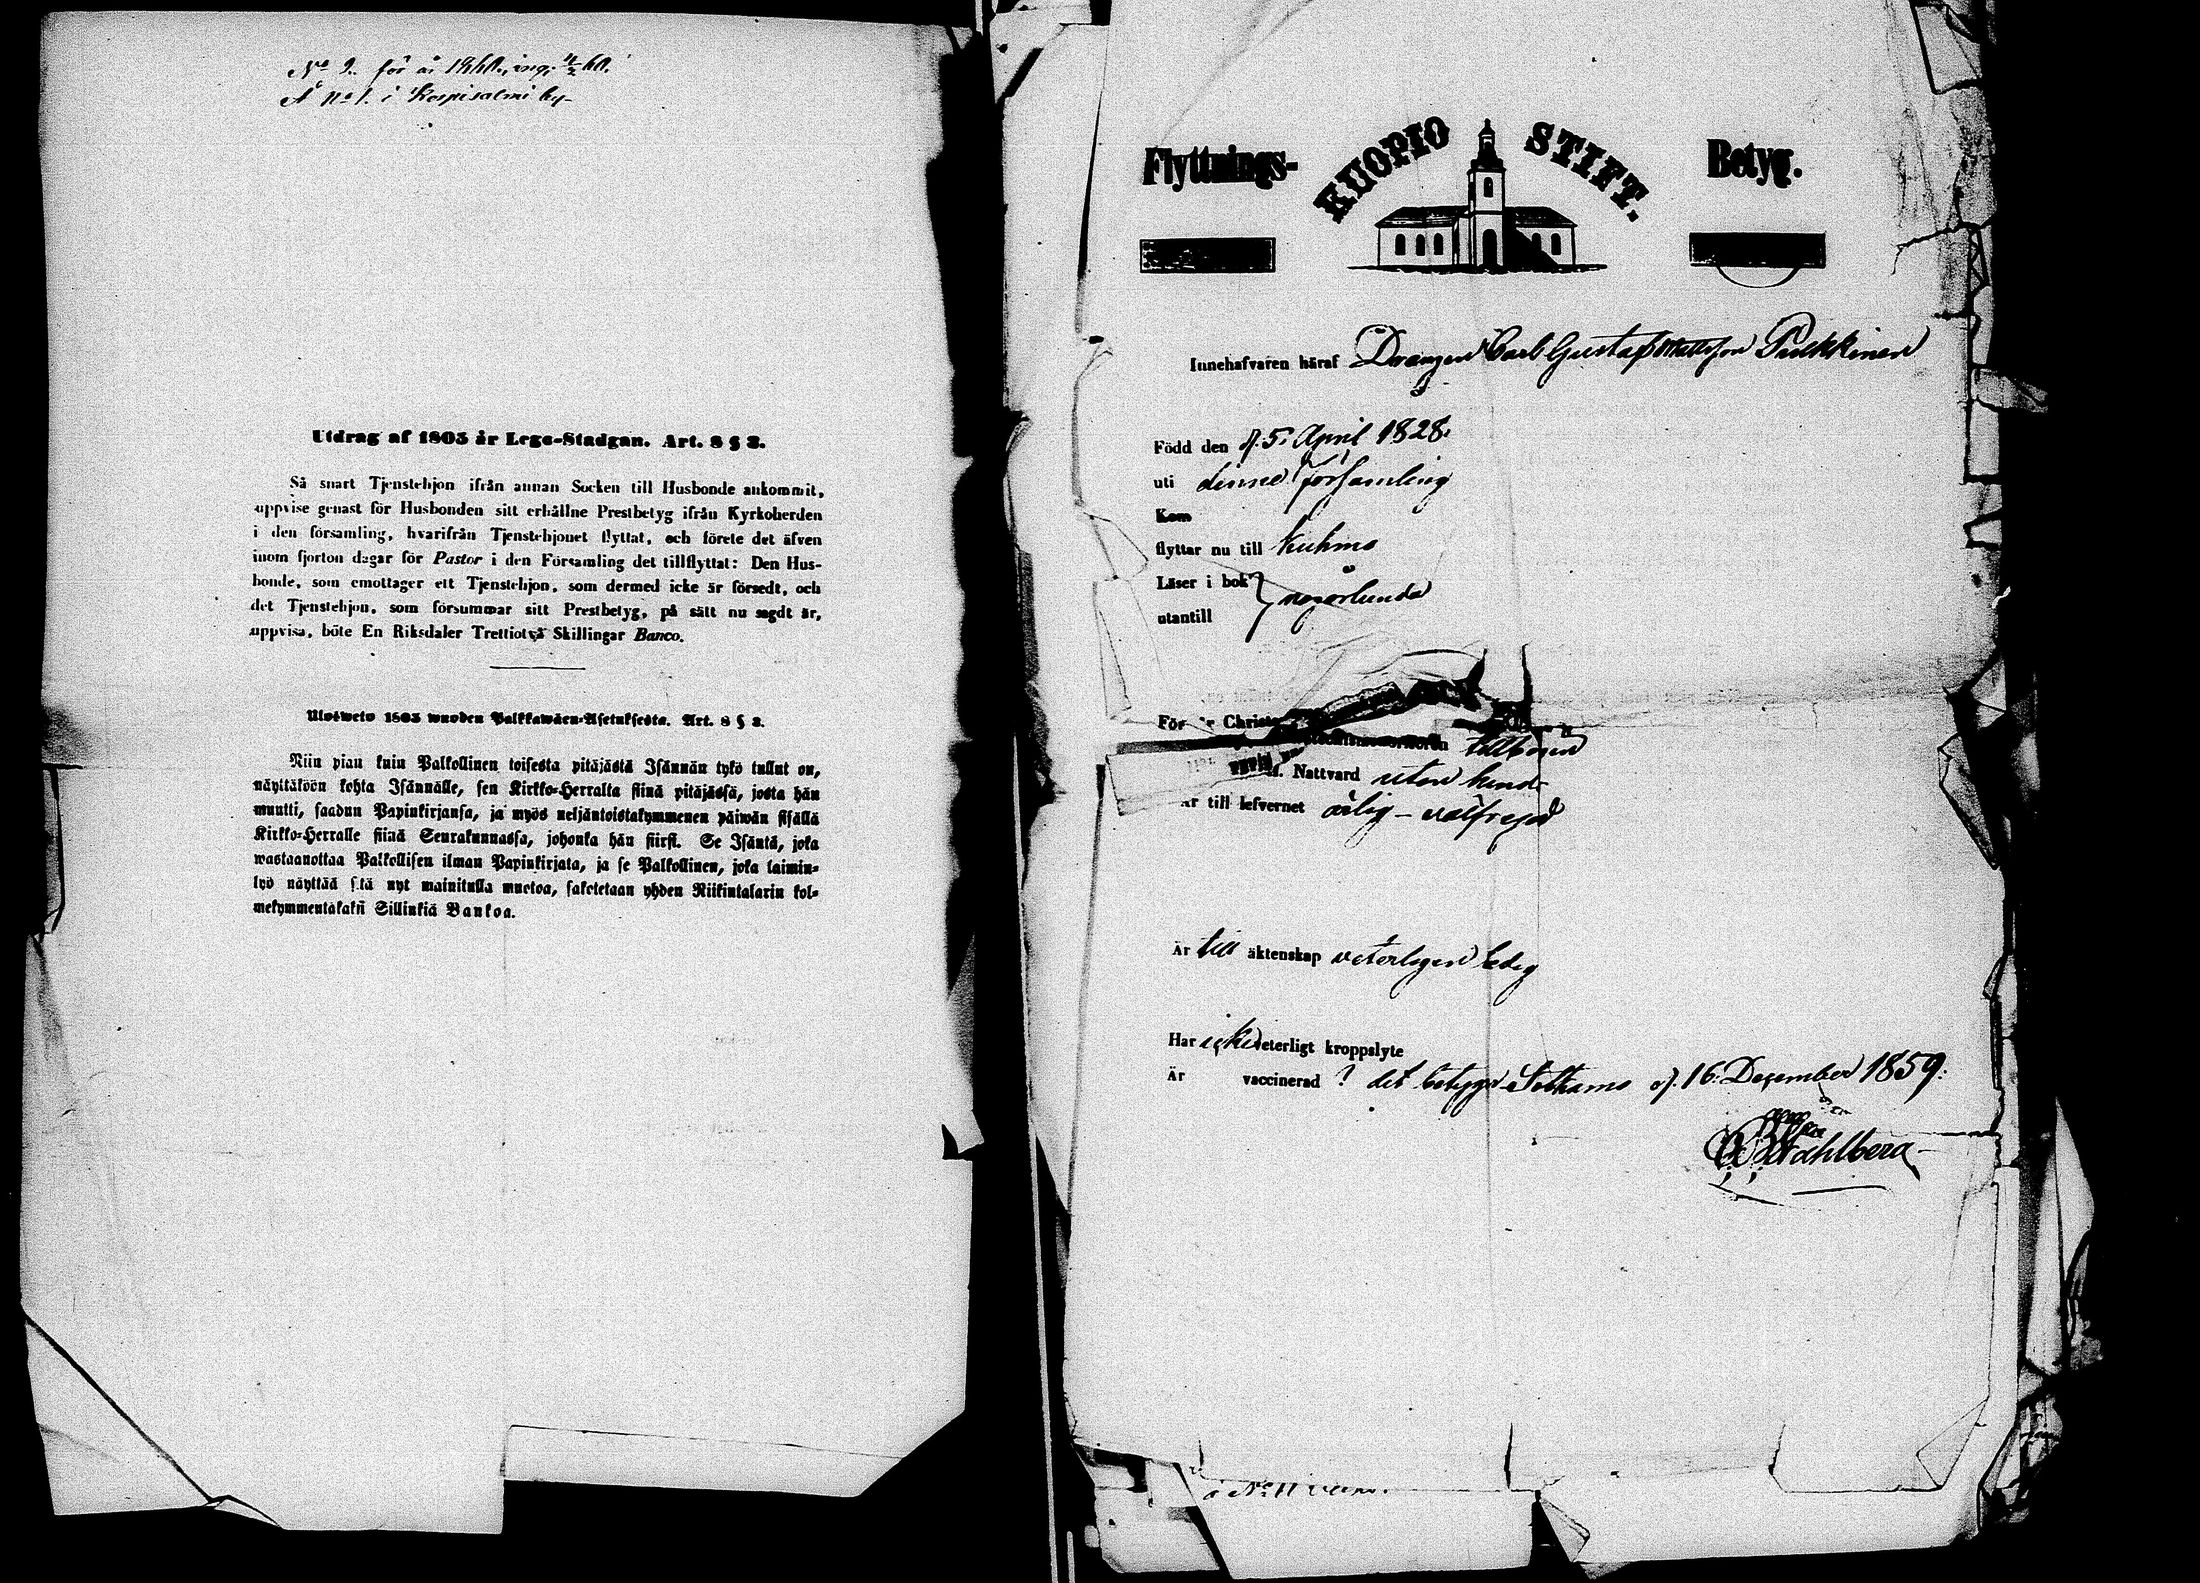 No 9. för år 1860, ing. 4/2 60.
Å No 1. i Korpisalmi by
Utdrag af 1805 år Lego-Stadgan. Art. 8 § 3.
Så snart Tjenstehjon ifrån annan Socken till Husbonde ankommit,
uppvise genast för Husbonden sitt erhållne Prestbetyg ifrån Kyrkoherden
i den församling, hvarifrån Tjenstehjonet flyttat, och förete det äfven
inom fjorton dagar för Pastor i den Församling det tillflyttat: Den Hus-
bonde, som emottager ett Tjenstehjon, som dermed icke är försedt, och
det Tjenstehjon, som försummar sitt Prestbetyg, på sätt nu sagdt är,
uppvisa, böte En Riksdaler Trettiotvå Skillingar Banco.
Ulosweto 1805 wuoden Palkkawäen-Asetuksesta. Art. 8 § 3.
Niin pian kuin Palkollinen toisesta pitäjästä Isännän tykö tullut on,
näyttäköön kohta Isännälle, sen Kirkko-Herralta siinä pitäjässä, josta hän
muutti, saadun Papinkirjansa, ja myös neljäntoistakymmenen päiwän sisällä
Kirkko-Herralle siinä Seurakunnassa, johonka hän siirsi. Se Isäntä, joka
wastaanottaa Palkollisen ilman Papinkirjata, ja se Palkollinen, joka laimin-
lyö näyttää sitä nyt mainitulla muotoa, saketetaan yhden Riikintalarin kol-
mekymmentäkaksi Sillinkiä Bankoa.
Flyttnings- KUOPIO STIFT. Betyg.
Innehafvaren häraf Drängen Carl Gustaf Mattsson Pulkkinen
Född den d. 5. April 1828.
uti denne församling
Kom
flyttar nu till Kuhmo
Läser i bok
utantill någorlunda
För Christ
tillbörlig
Nattvard utan hind-
Är till lefvernet ärlig - välfrejd
Är till äktenskap veterligen ledig
Har icke veterligt kroppslyte
Är vaccinerad ? det betygar Sotkamo d. 16. December 1859.
Wahlberg